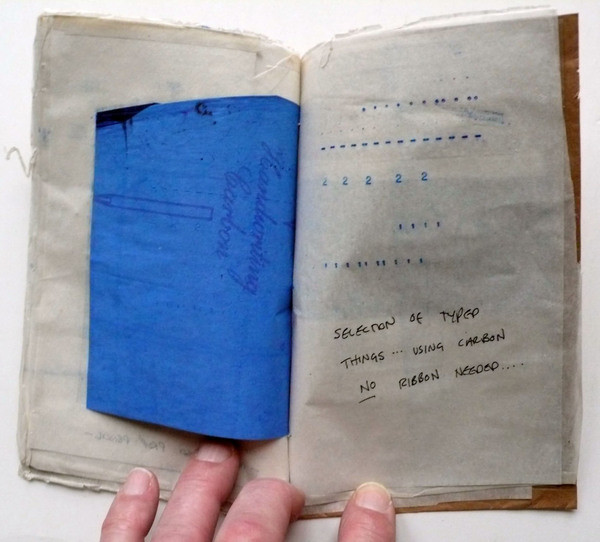 Handwriting
Carbon
2 2 2 2 2
SELECTION OF TYPED
THINGS... USING CARBON
NO RIBBON NEEDED....